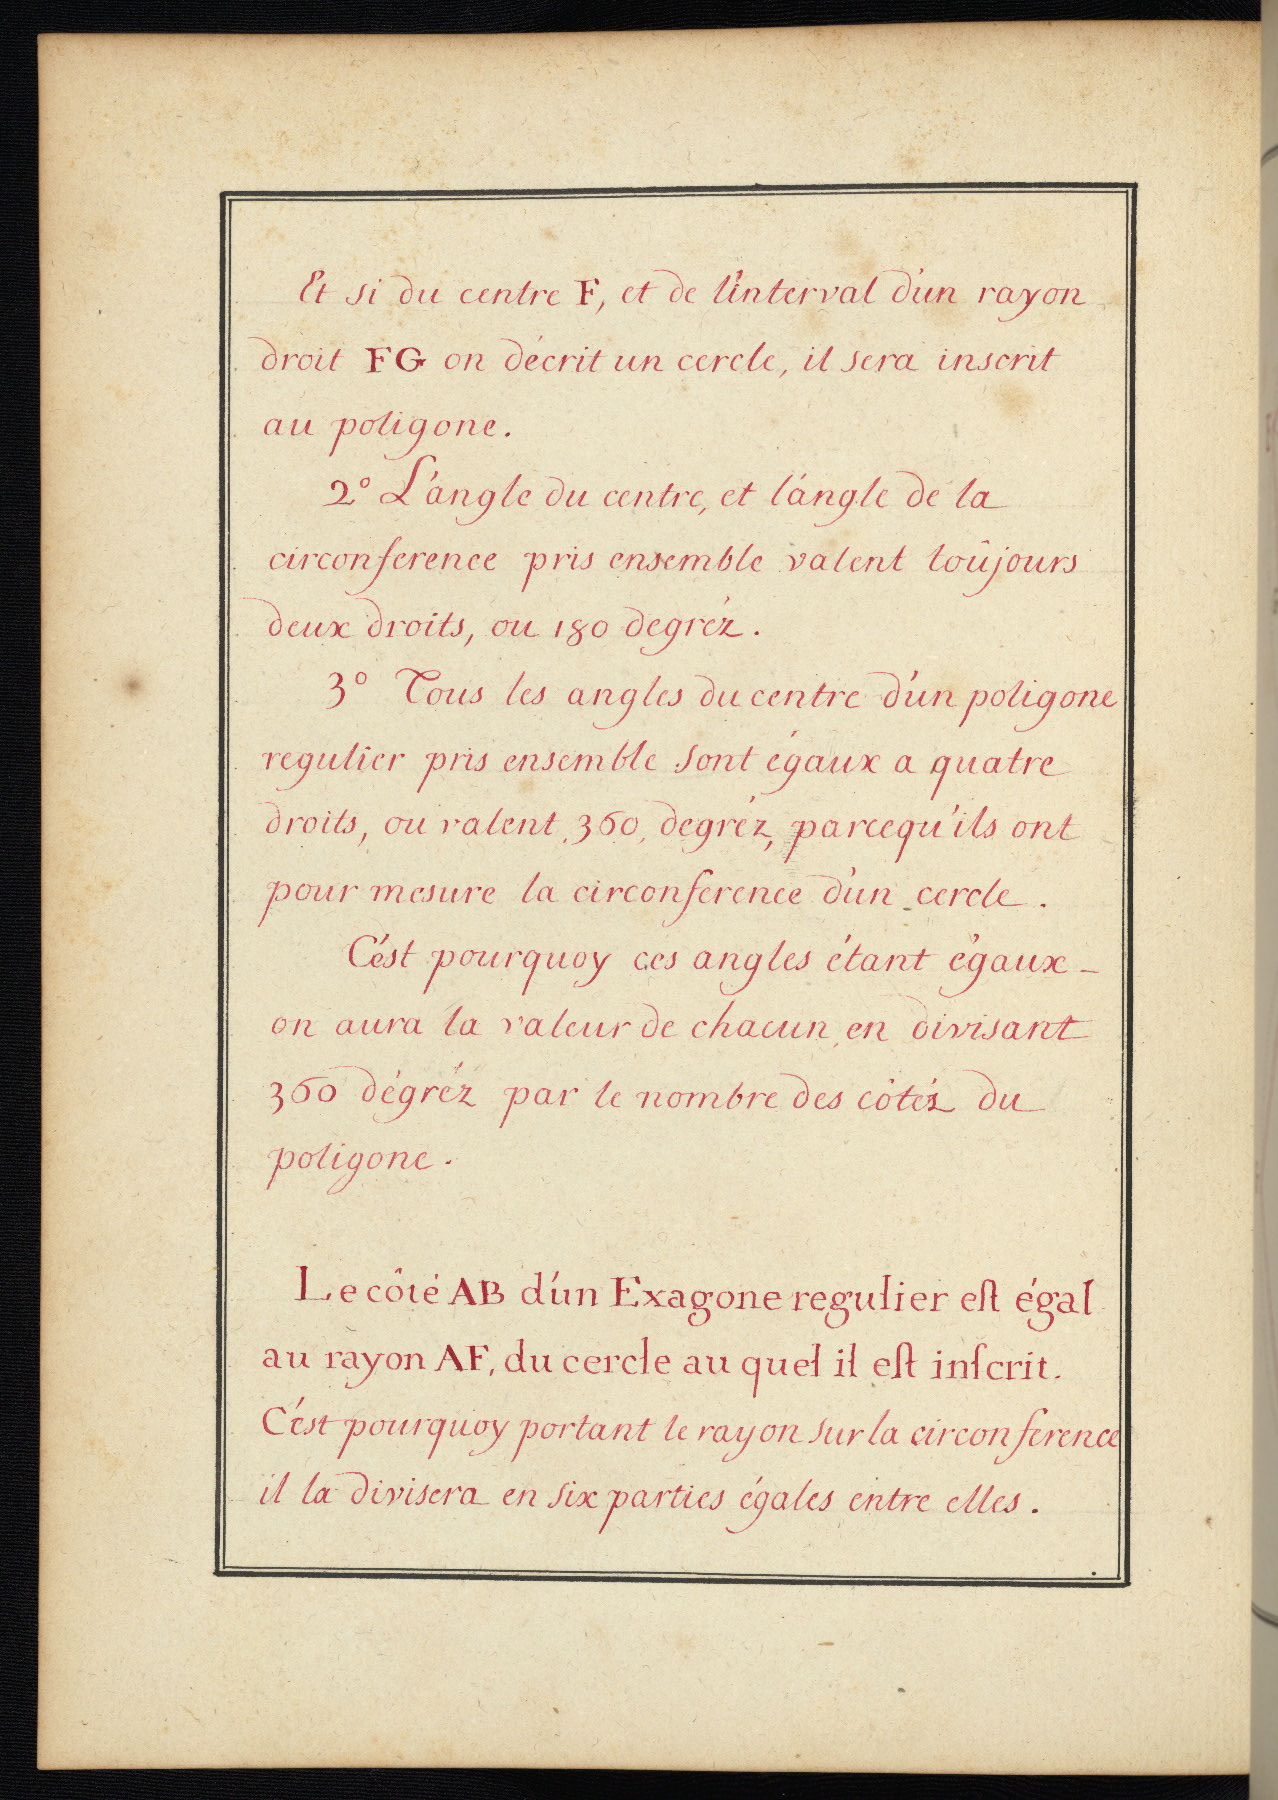 Et si du centre F, et de l'interval d'un rayon
droit FG on décrit un cercle, il sera inscrit
au poligone.
2° L'angle du centre, et l'angle de la
circonference pris ensemble valent toûjours
deux droits, ou 180 degréz.
3° Tous les angles du centre d'un poligone
regulier pris ensemble sont égaux a quatre
droits, ou valent 360 degréz, parcequ'ils ont
pour mesure la circonference d'un cercle.
C'est pourquoy ces angles étant égaux -
on aura la valeur de chacun en divisant
360 dégréz par le nombre des côtéz du
poligone.
Le côté AB d'un Exagone regulier est égal
au rayon AF, du cercle au quel il est inſcrit.
C'est pourquoy portant le rayon sur la circonference
il la divisera en six parties égales entre elles.